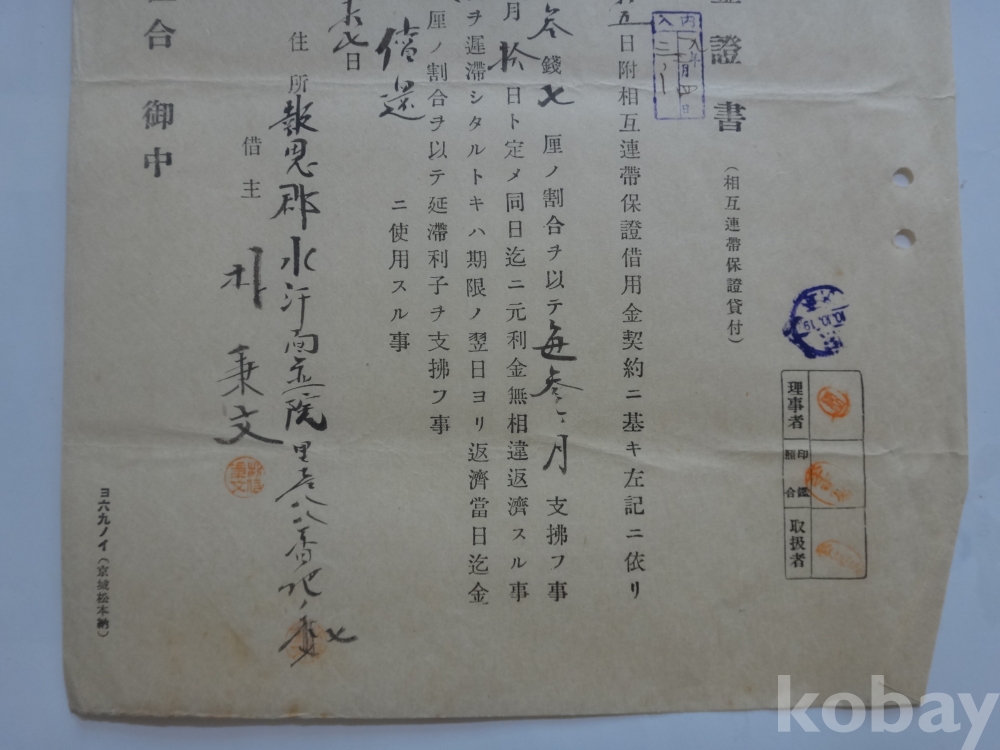 證書
(相互連帶保證貸付)
五日附相互連帶保證借用金契約ニ基キ左記ニ依リ
參錢七厘ノ割合ヲ以テ每參ヶ月支拂フ事
月拾日ト定メ同日迄ニ元利金無相違返濟スル事
ヲ遲滯シタルトキハ期限ノ翌日ヨリ返濟當日迄金
厘ノ割合ヲ以テ延滯利子ヲ支拂フ事
償還ニ使用スル事
日
住所報恩郡水汗面
里
借主朴秉文
合御中
理事者
印鑑照合
取扱者
ヨ六九ノイ(京城松本納)
kobay